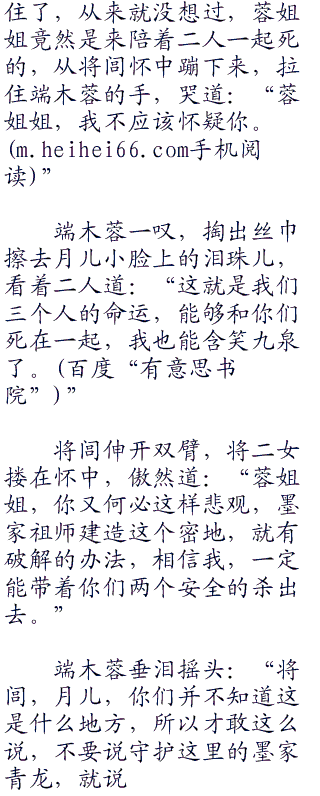 住了，从来就没想过，蓉姐
姐竟然是来陪着二人一起死
的，从将闾怀中蹦下来，拉
住端木蓉的手，哭道：“蓉
姐姐，我不应该怀疑你。
(m.heihei66.com手机阅
读)”
端木蓉一叹，掏出丝巾
擦去月儿小脸上的泪珠儿，
看着二人道：“这就是我们
三个人的命运，能够和你们
死在一起，我也能含笑九泉
了。(百度“有意思书
院”)”
将闾伸开双臂，将二女
搂在怀中，傲然道：“蓉姐
姐，你又何必这样悲观，墨
家祖师建造这个密地，就有
破解的办法，相信我，一定
能带着你们两个安全的杀出
去。”
端木蓉垂泪摇头：“将
闾，月儿，你们并不知道这
是什么地方，所以才敢这么
说，不要说守护这里的墨家
青龙，就说